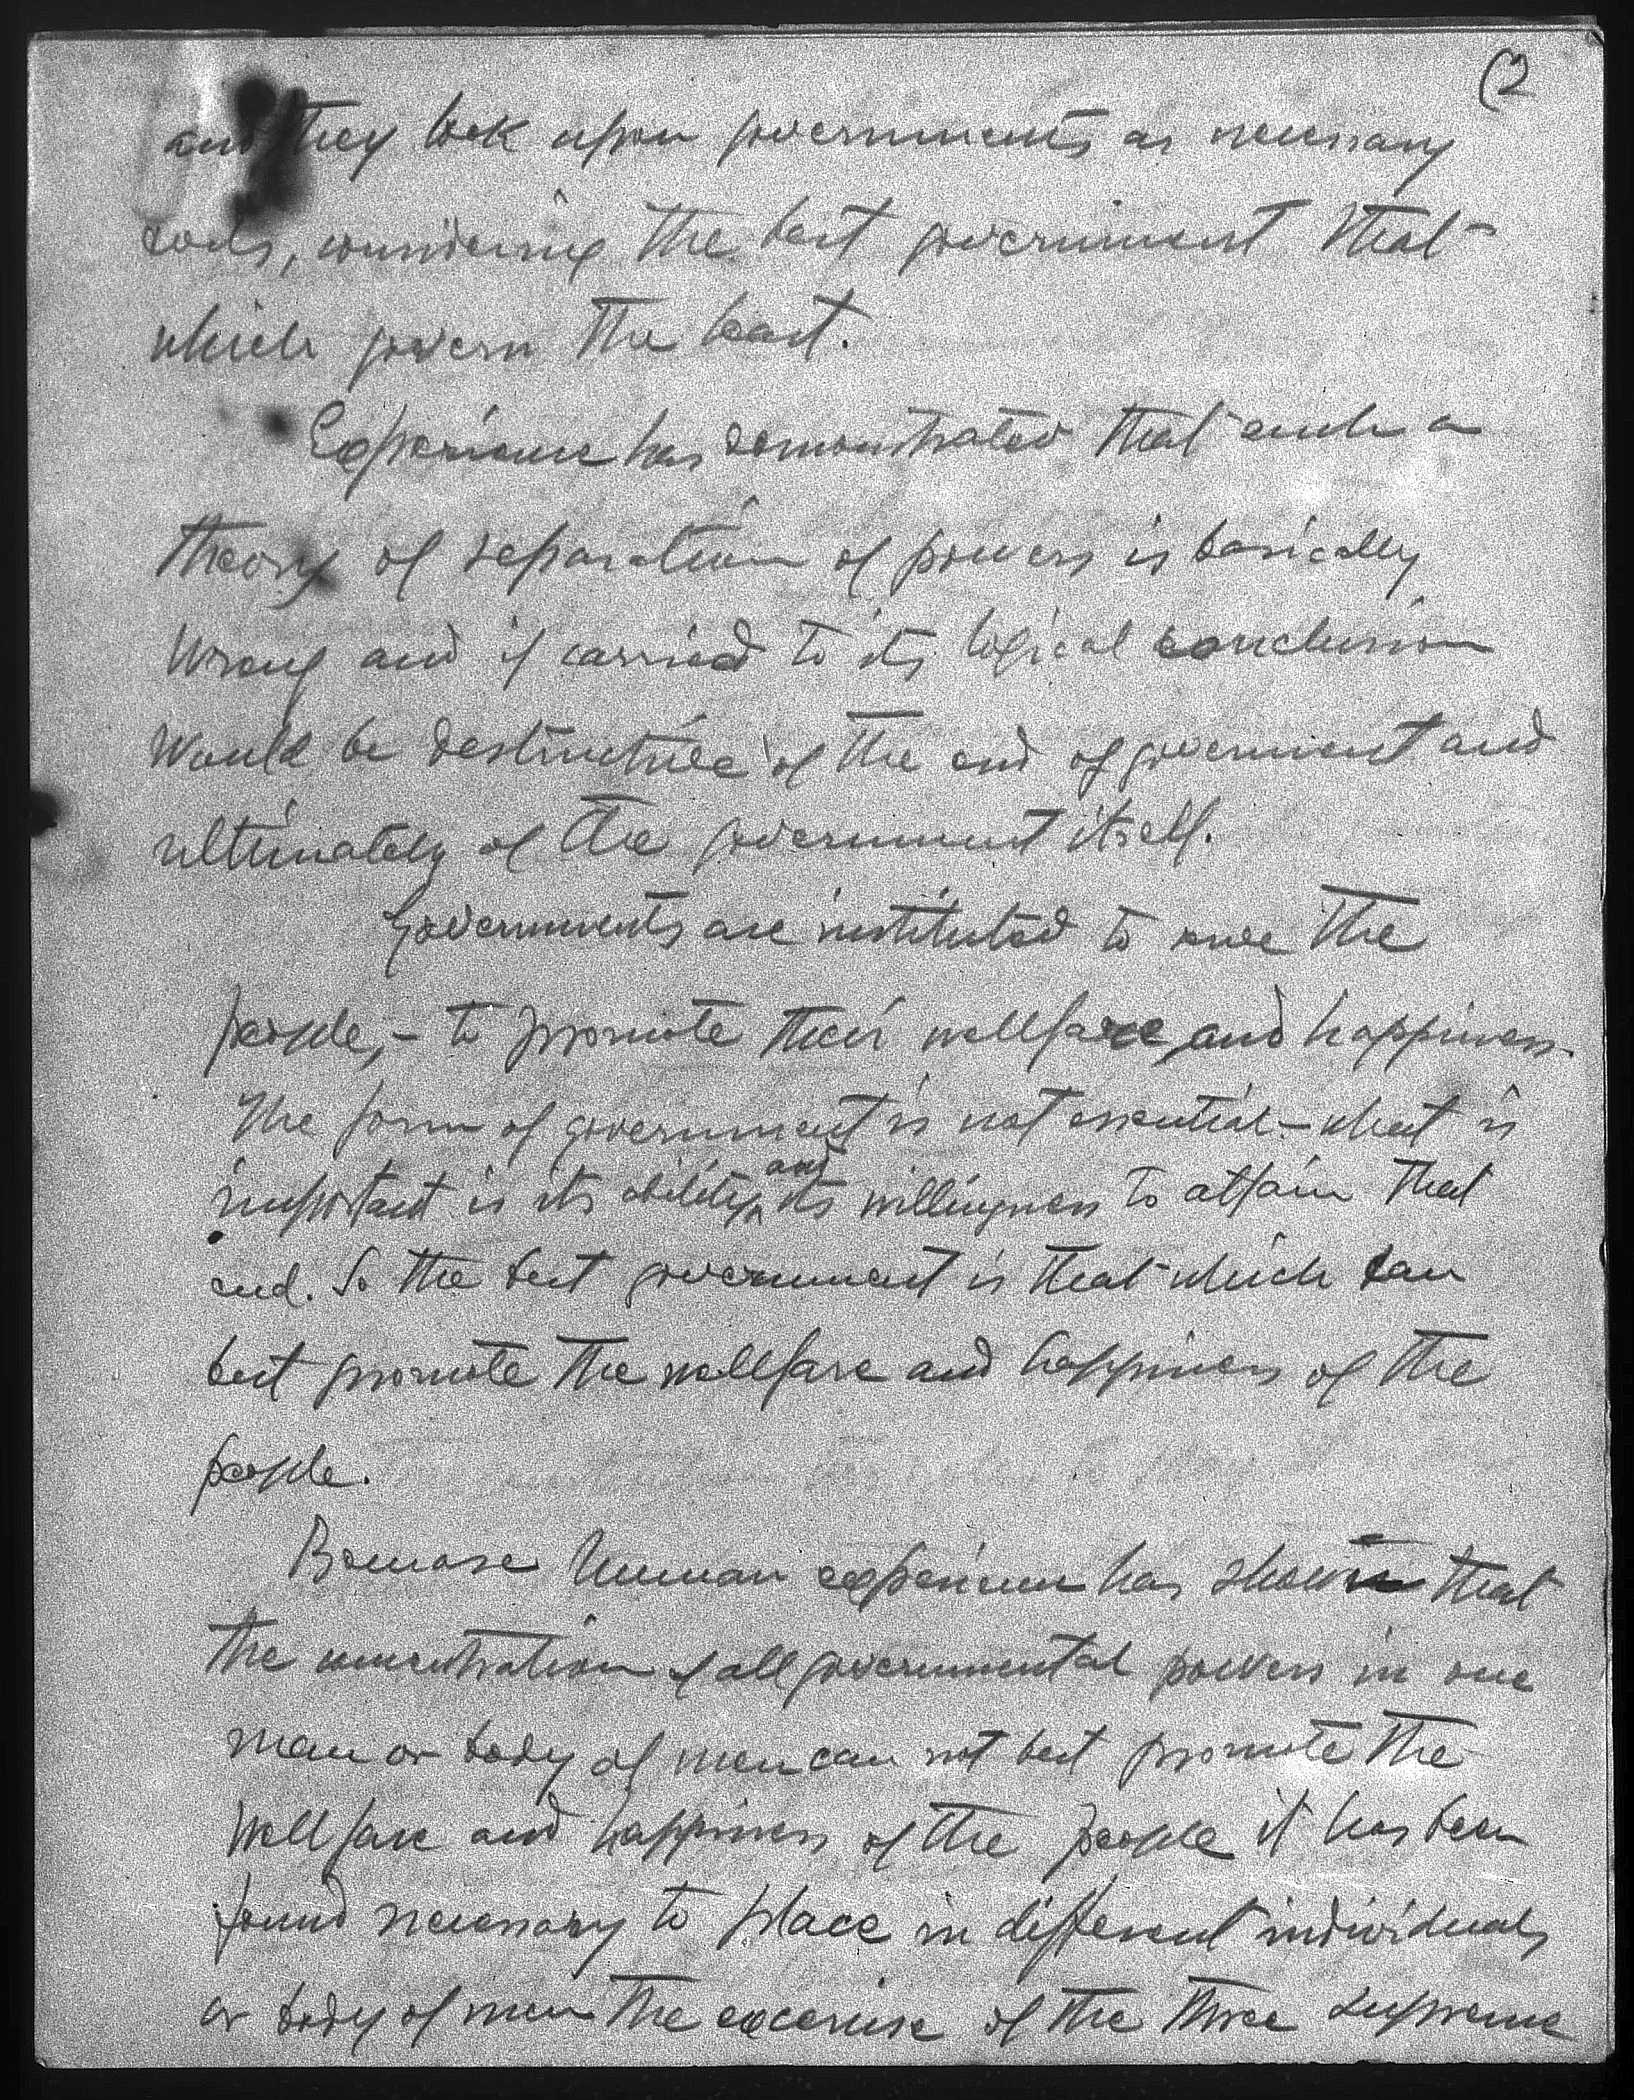 (2
and they look upon governments as necessary
evils, considering the best government that
which govern the least.
Experience has demonstrated that such a
theory of separation of powers is basically
wrong and if carried to its logical conclusion
would be destructive of the end of government and
ultimately of the government itself.
Governments are instituted to serve the
people,- to promote their wellfare, and happiness.
The form of government is not essential - what is
important is its ability and its willingness to attain that
end. So the best government is that which can
best promote the wellfare and happiness of the
people.
Because human experience has shown that
the concentration of all governmental powers in one
man or body of men can not best promote the
wellfare and happiness of the people it has been
found necessary to place in different individuals
or body of men the excercise of the three supreme